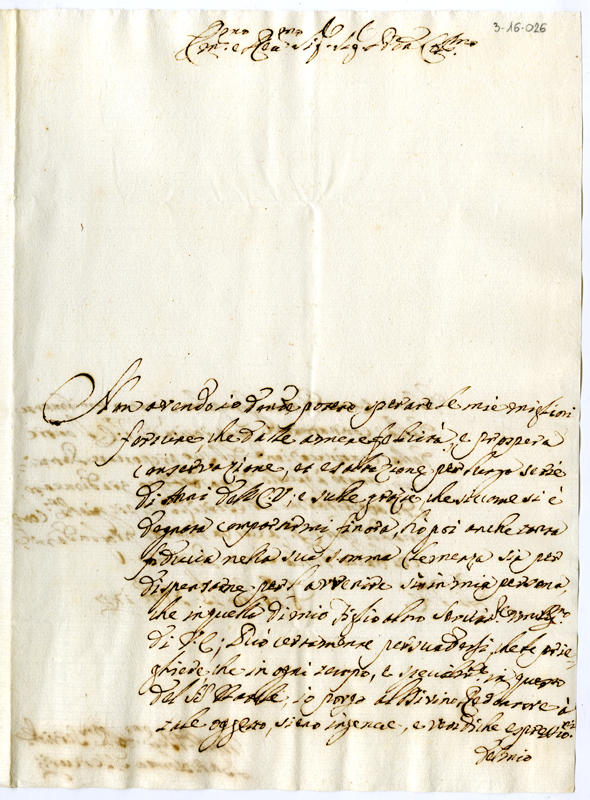 3-16-026
Em:mo e Rev:mo Sig:r Sig:r Pron Col:mo
Non avendo io d'onde potere sperare le mie migliori
fortune, che dalle annue felicità, e prospera
conservazione, et esaltazione per lungo serie
di Anni dell'E.V; e sulle grazie, che siccome si è
degnata compartirmi finora, hò poi anche tutta
fiducia nella sua somma clemenza sia per
dispensarne per l'avvenire sì in mia persona,
che in quella di mio figlio altro
di V.E; Può certamente persuadersi, che le prie-
ghiere che in ogni tempo, e in questo
del S:to Natale, io porgo al Divino Redentore à
tale oggetto, sieno ingenue, e veridiche espressio:ni
del mio